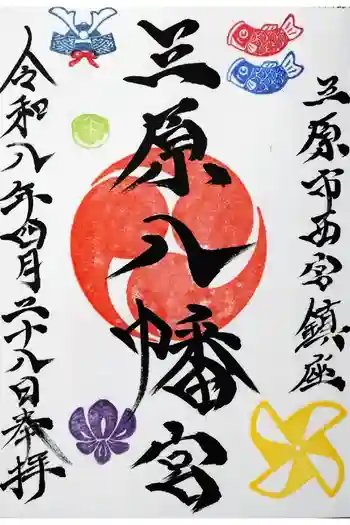 三原市西宮鎮座
三原八幡宮
令和八年四月二十八日奉拝